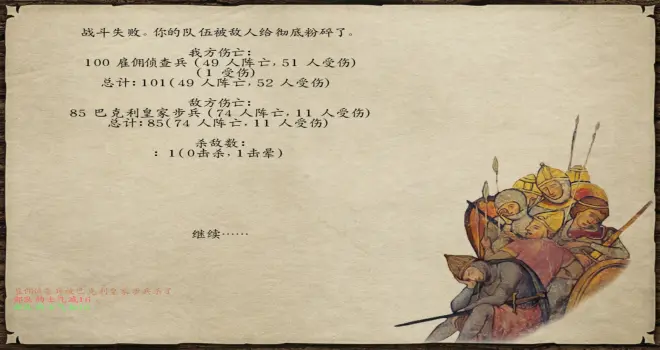 战斗失败。你的队伍被敌人给彻底粉碎了。
我方伤亡:
100 雇佣侦查兵 (49 人阵亡,51 人受伤)
(1 受伤)
总计:101(49 人阵亡,52 人受伤)
敌方伤亡:
85 巴克利皇家步兵 (74 人阵亡,11 人受伤)
总计:85(74 人阵亡,11 人受伤)
杀敌数:
: 1(0击杀,1击晕)
继续……